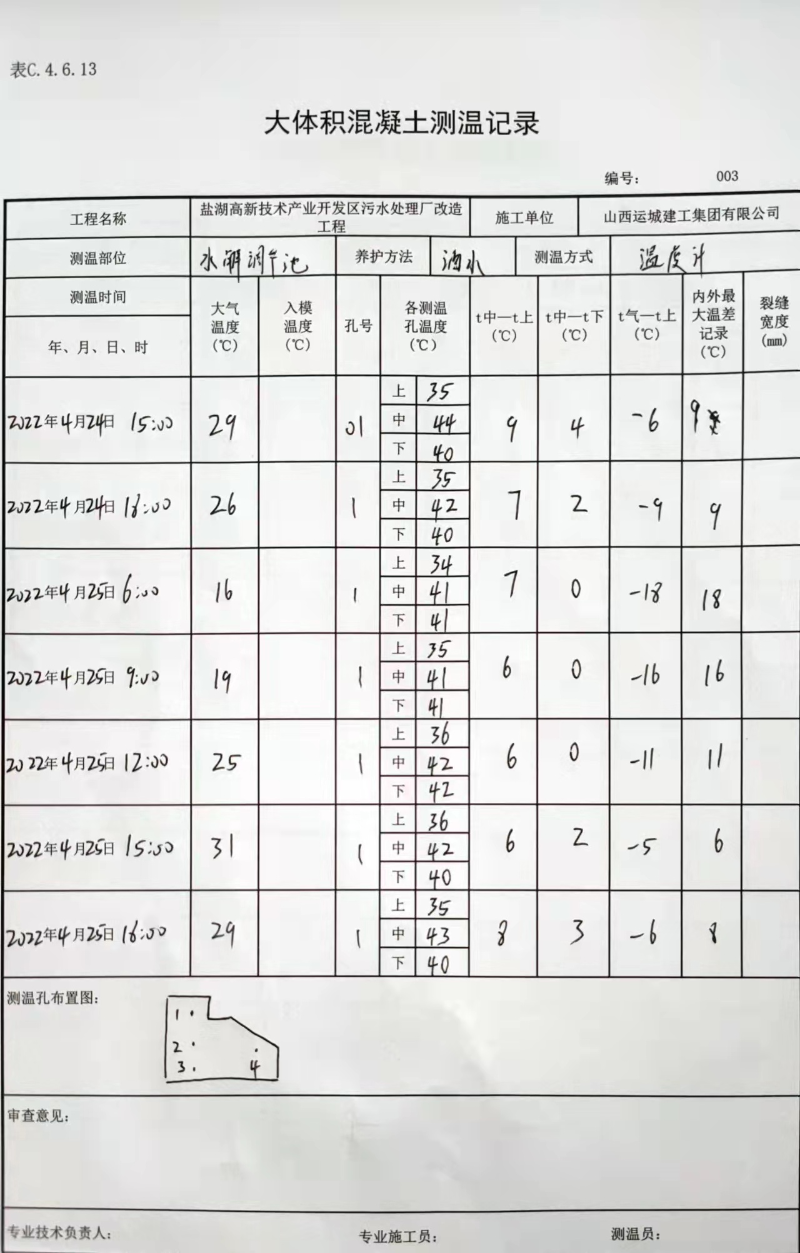 表C.4.6.13
大体积混凝土测温记录
编号： 003
工程名称 盐湖高新技术产业开发区污水处理厂改造工程 施工单位 山西运城建工集团有限公司
测温部位 水解调节池 养护方法 洒水 测温方式 温度计
测温时间
年、月、日、时
大气温度(℃) 入模温度(℃) 孔号 各测温孔温度(℃) t中—t上(℃) t中—t下(℃) t气—t上(℃) 内外最大温差记录(℃) 裂缝宽度(mm)
2022年4月24日 15:00 29 01 上 35 9 4 -6 9
中 44
下 40
2022年4月24日 18:00 26 1 上 35 7 2 -9 9
中 42
下 40
2022年4月25日 6:00 16 1 上 34 7 0 -18 18
中 41
下 41
2022年4月25日 9:00 19 1 上 35 6 0 -16 16
中 41
下 41
2022年4月25日 12:00 25 1 上 36 6 0 -11 11
中 42
下 42
2022年4月25日 15:00 31 1 上 36 6 2 -5 6
中 42
下 40
2022年4月25日 18:00 29 1 上 35 8 3 -6 8
中 43
下 40
测温孔布置图：
1
2
3 4
审查意见：
专业技术负责人： 专业施工员： 测温员：